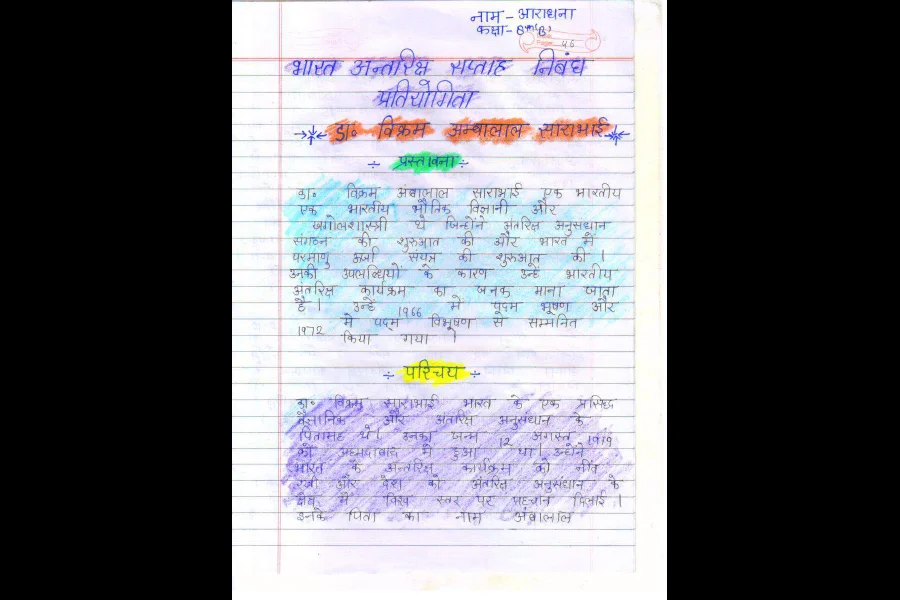 नाम - आराधना
कक्षा - 8th 'B'
भारत अन्तरिक्ष सप्ताह निबंध
प्रतियोगिता
डा॰ विक्रम अम्बालाल साराभाई
÷ प्रस्तावना ÷
डा॰ विक्रम अंबालाल साराभाई एक भारतीय
एक भारतीय भौतिक विज्ञानी और
खगोलशास्त्री थे जिन्होंने अंतरिक्ष अनुसंधान
संगठन की शुरुआत की और भारत में
परमाणु ऊर्जा संयत्र की शुरुआत की।
उनकी उपलब्धियों के कारण उन्हें भारतीय
अंतरिक्ष कार्यक्रम का जनक माना जाता
है। उन्हें 1966 में पद्म भूषण और
1972 में पद्म विभूषण से सम्मनित
किया गया।
÷ परिचय ÷
डा॰ विक्रम साराभाई भारत के एक प्रसिद्ध
वैज्ञानिक और अंतरिक्ष अनुसंधान के
पितामह थे। उनका जन्म 12 अगस्त 1919
को अहमदाबाद में हुआ था। उन्होंने
भारत के अन्तरिक्ष कार्यक्रम की नींव
रखी और देश को अंतरिक्ष अनुसंधान के
क्षेत्र में विश्व स्तर पर पहचान दिलाई।
इनके पिता का नाम अंबालाल